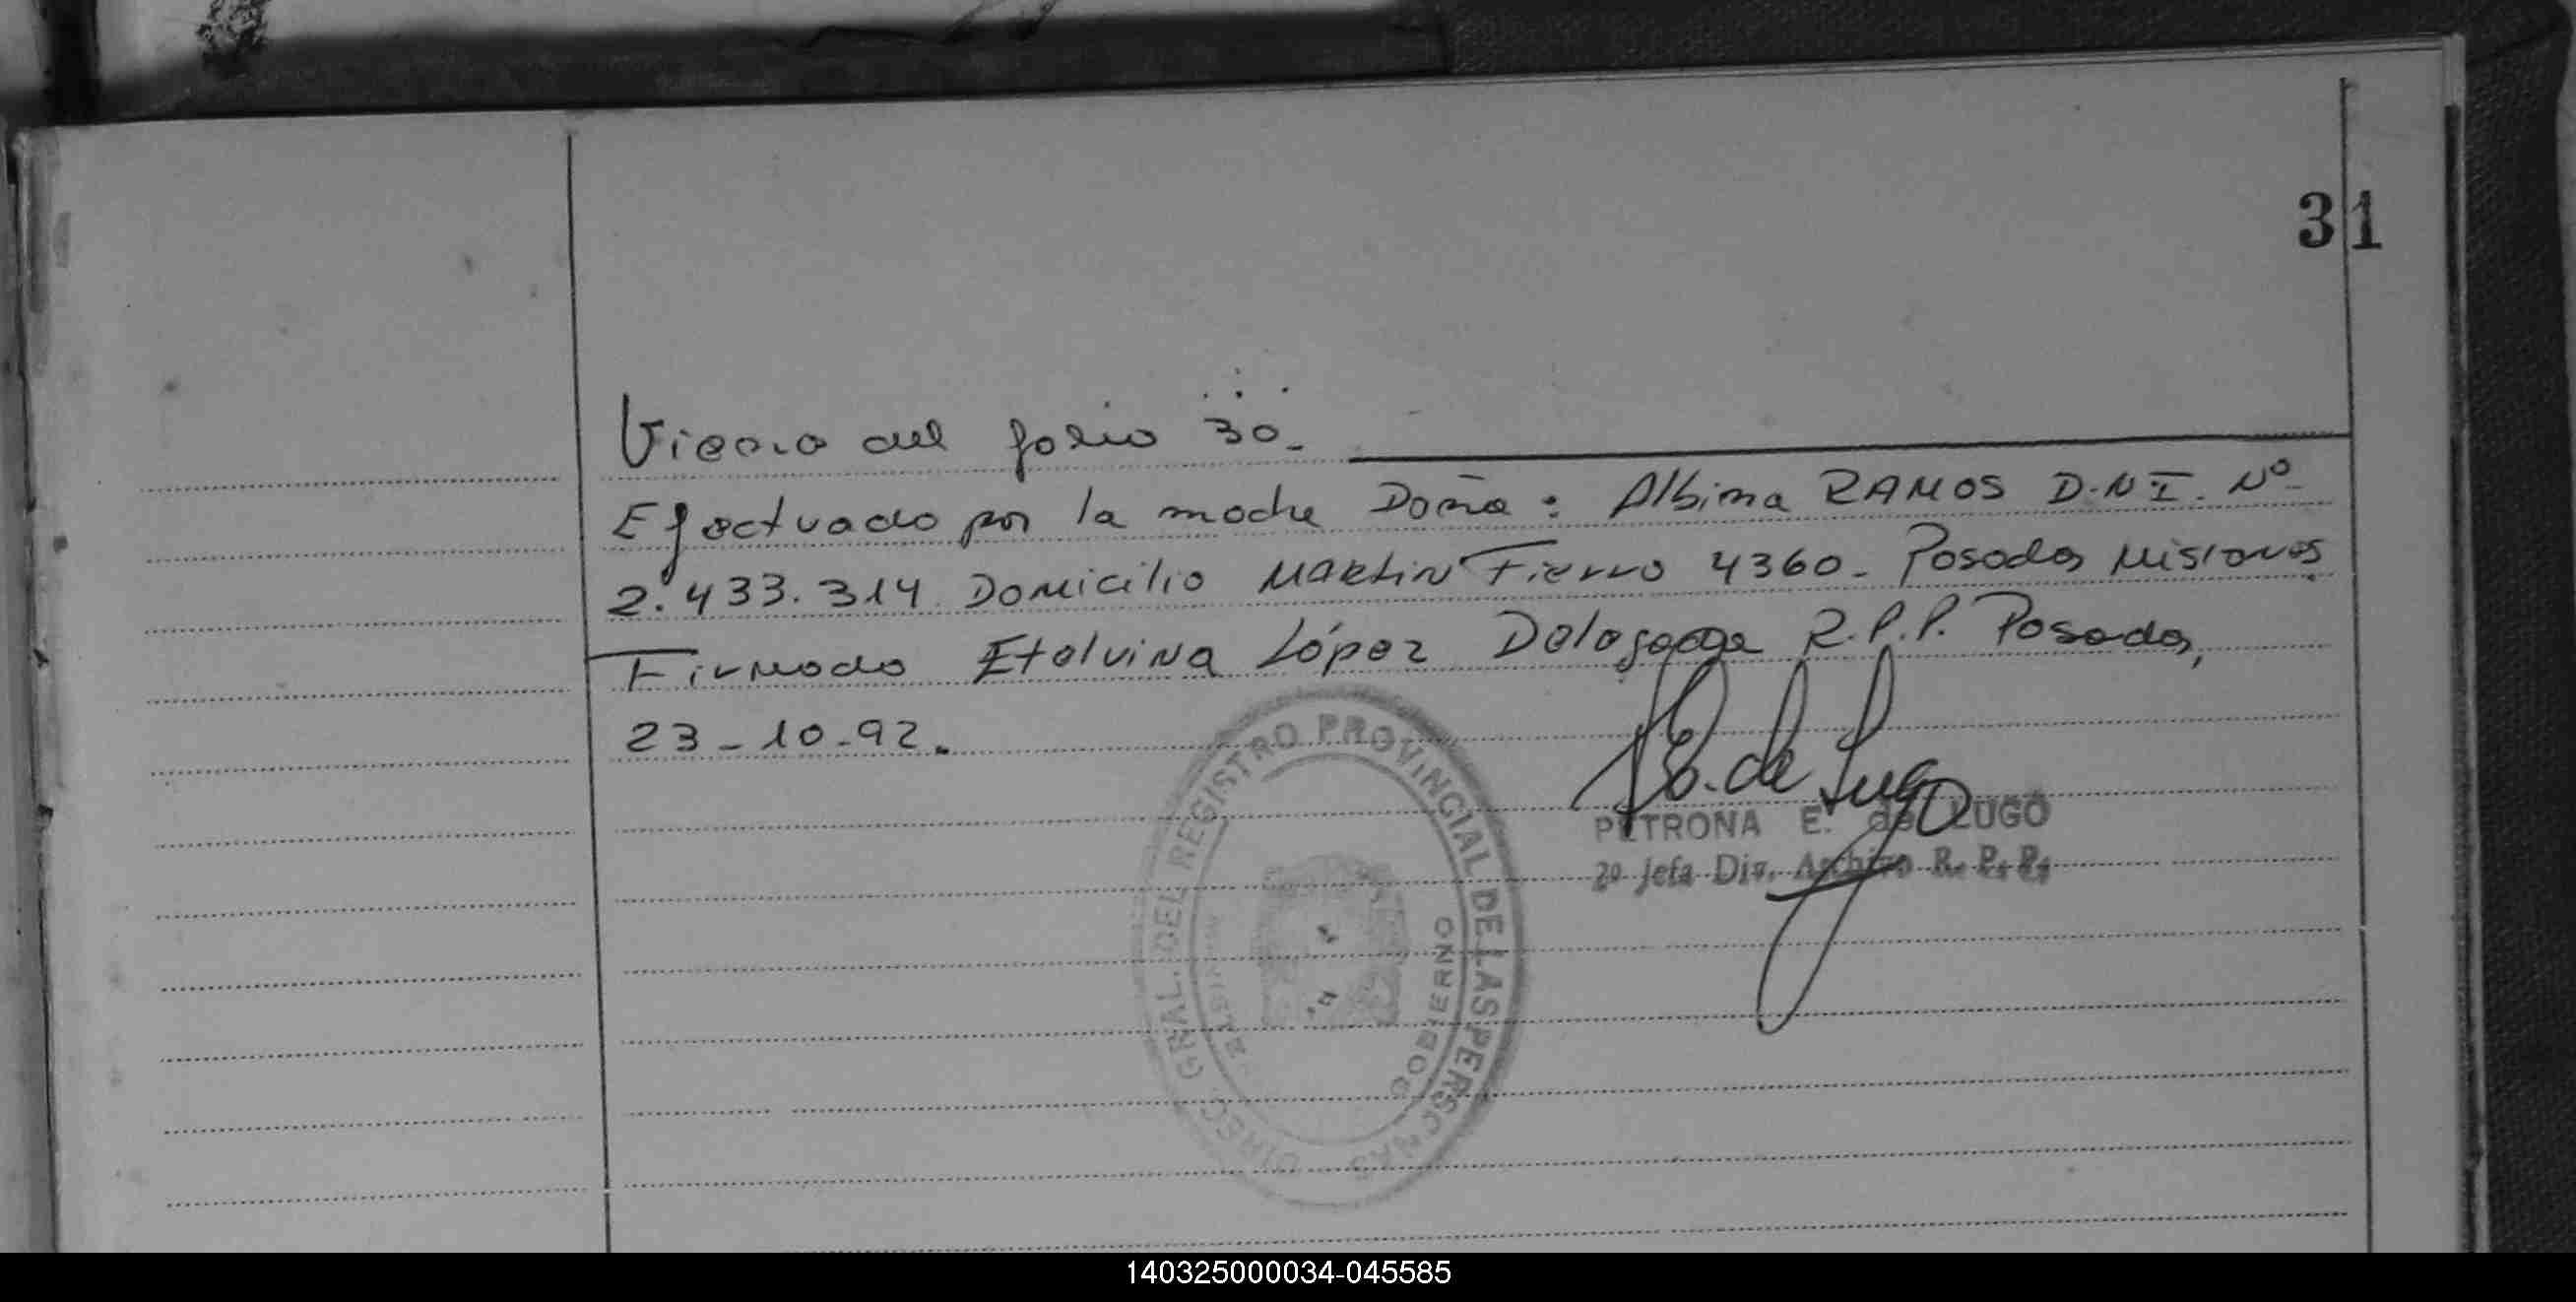 31
Viene del folio 30.-
Efectuado por la madre Doña: Albina RAMOS D.N.I. Nº
2.433.314 Domicilio Martin Fierro 4360- Posadas Misiones
Firmado Etelvina López Delegada R.P.P. Posadas,
23-10-92.
E. de Lugo
PETRONA E. de LUGO
2º Jefa Div. Archivo R. P. P.
DIREC. GRAL. DEL REGISTRO PROVINCIAL DE LAS PERSONAS
GOBIERNO
140325000034-045585